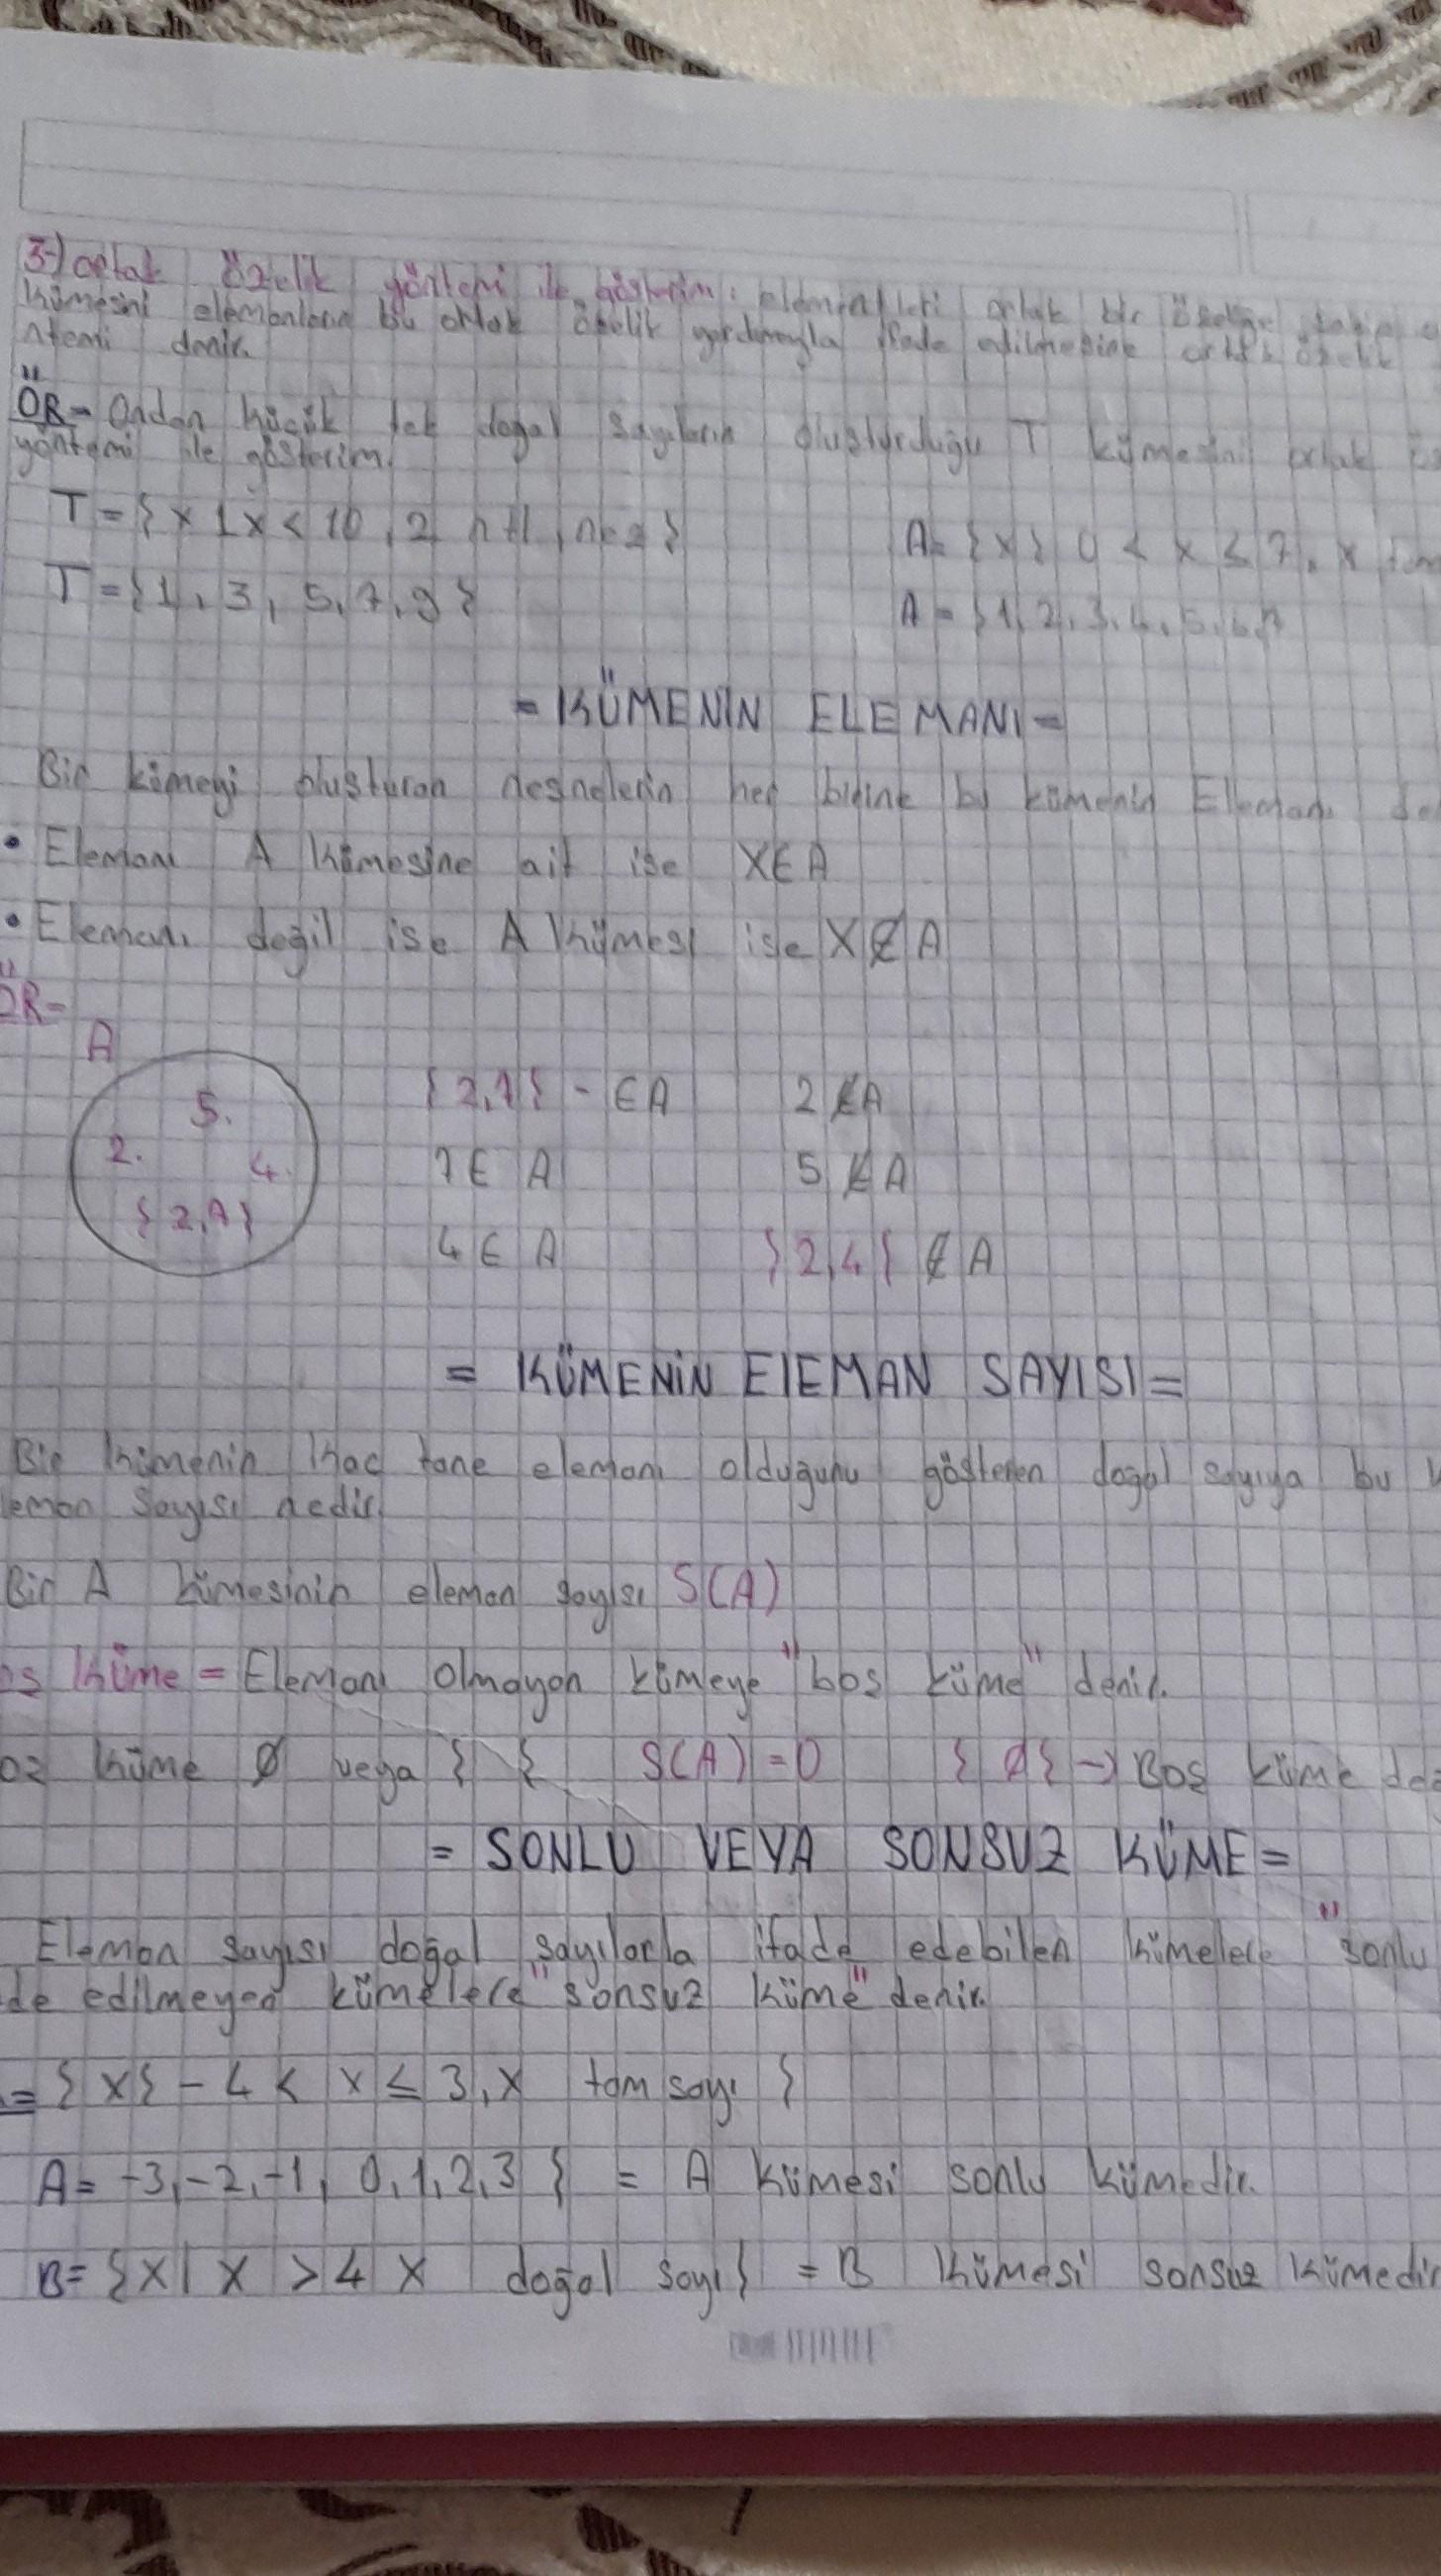 3-) ortak özelik yöntemi ile gösterim: elemanları ortak bir özeliğe
kümesini elemanların bu ortak özelik yardımıyla ifade edilmesine ortak özelik
ntemi denir.
ÖR- Ondan küçük tek doğal sayıların oluşturduğu T kümesini ortak
yöntemi ile gösterim.
T = { x 1 x < 10, 2 n+1, }
A = { x } 0 < x ≤ 7, x
T = {1, 3, 5, 7, 9}
A = {1, 2, 3, 4, 5, 6, 7
= KÜMENİN ELEMANI =
Bir kümeyi oluşturan nesnelerin her birine bu kümenin Elemanı
• Elemanı A kümesine ait ise X ∈ A
• Elemanı değil ise A kümesi ise X ∉ A
ÖR-
A
5.
2. 4.
{2,1} - ∈ A 2 ∉ A
7 ∈ A 5 ∉ A
4 ∈ A {2,4} ∉ A
= KÜMENİN ElEMAN SAYISI =
Bir kümenin kaç tane elemanı olduğunu gösteren doğal sayıya bu
leman sayısı nedir.
Bir A kümesinin eleman sayısı S(A)
os küme = Elemanı olmayan kümeye "boş küme" denir.
oz küme ∅ veya { } S(A) = 0 { ∅ } → Boş küme
= SONLU VEYA SONSUZ KÜME =
Eleman sayısı doğal sayılarla ifade edebilen kümelere "sonlu
de edilmeyen kümelere "sonsuz küme" denir.
= { x } - 4 < x ≤ 3, x tam sayı }
A = -3, -2, -1, 0, 1, 2, 3 } = A kümesi sonlu kümedir.
B = {x | x > 4 x doğal sayı} = B kümesi sonsuz kümedir